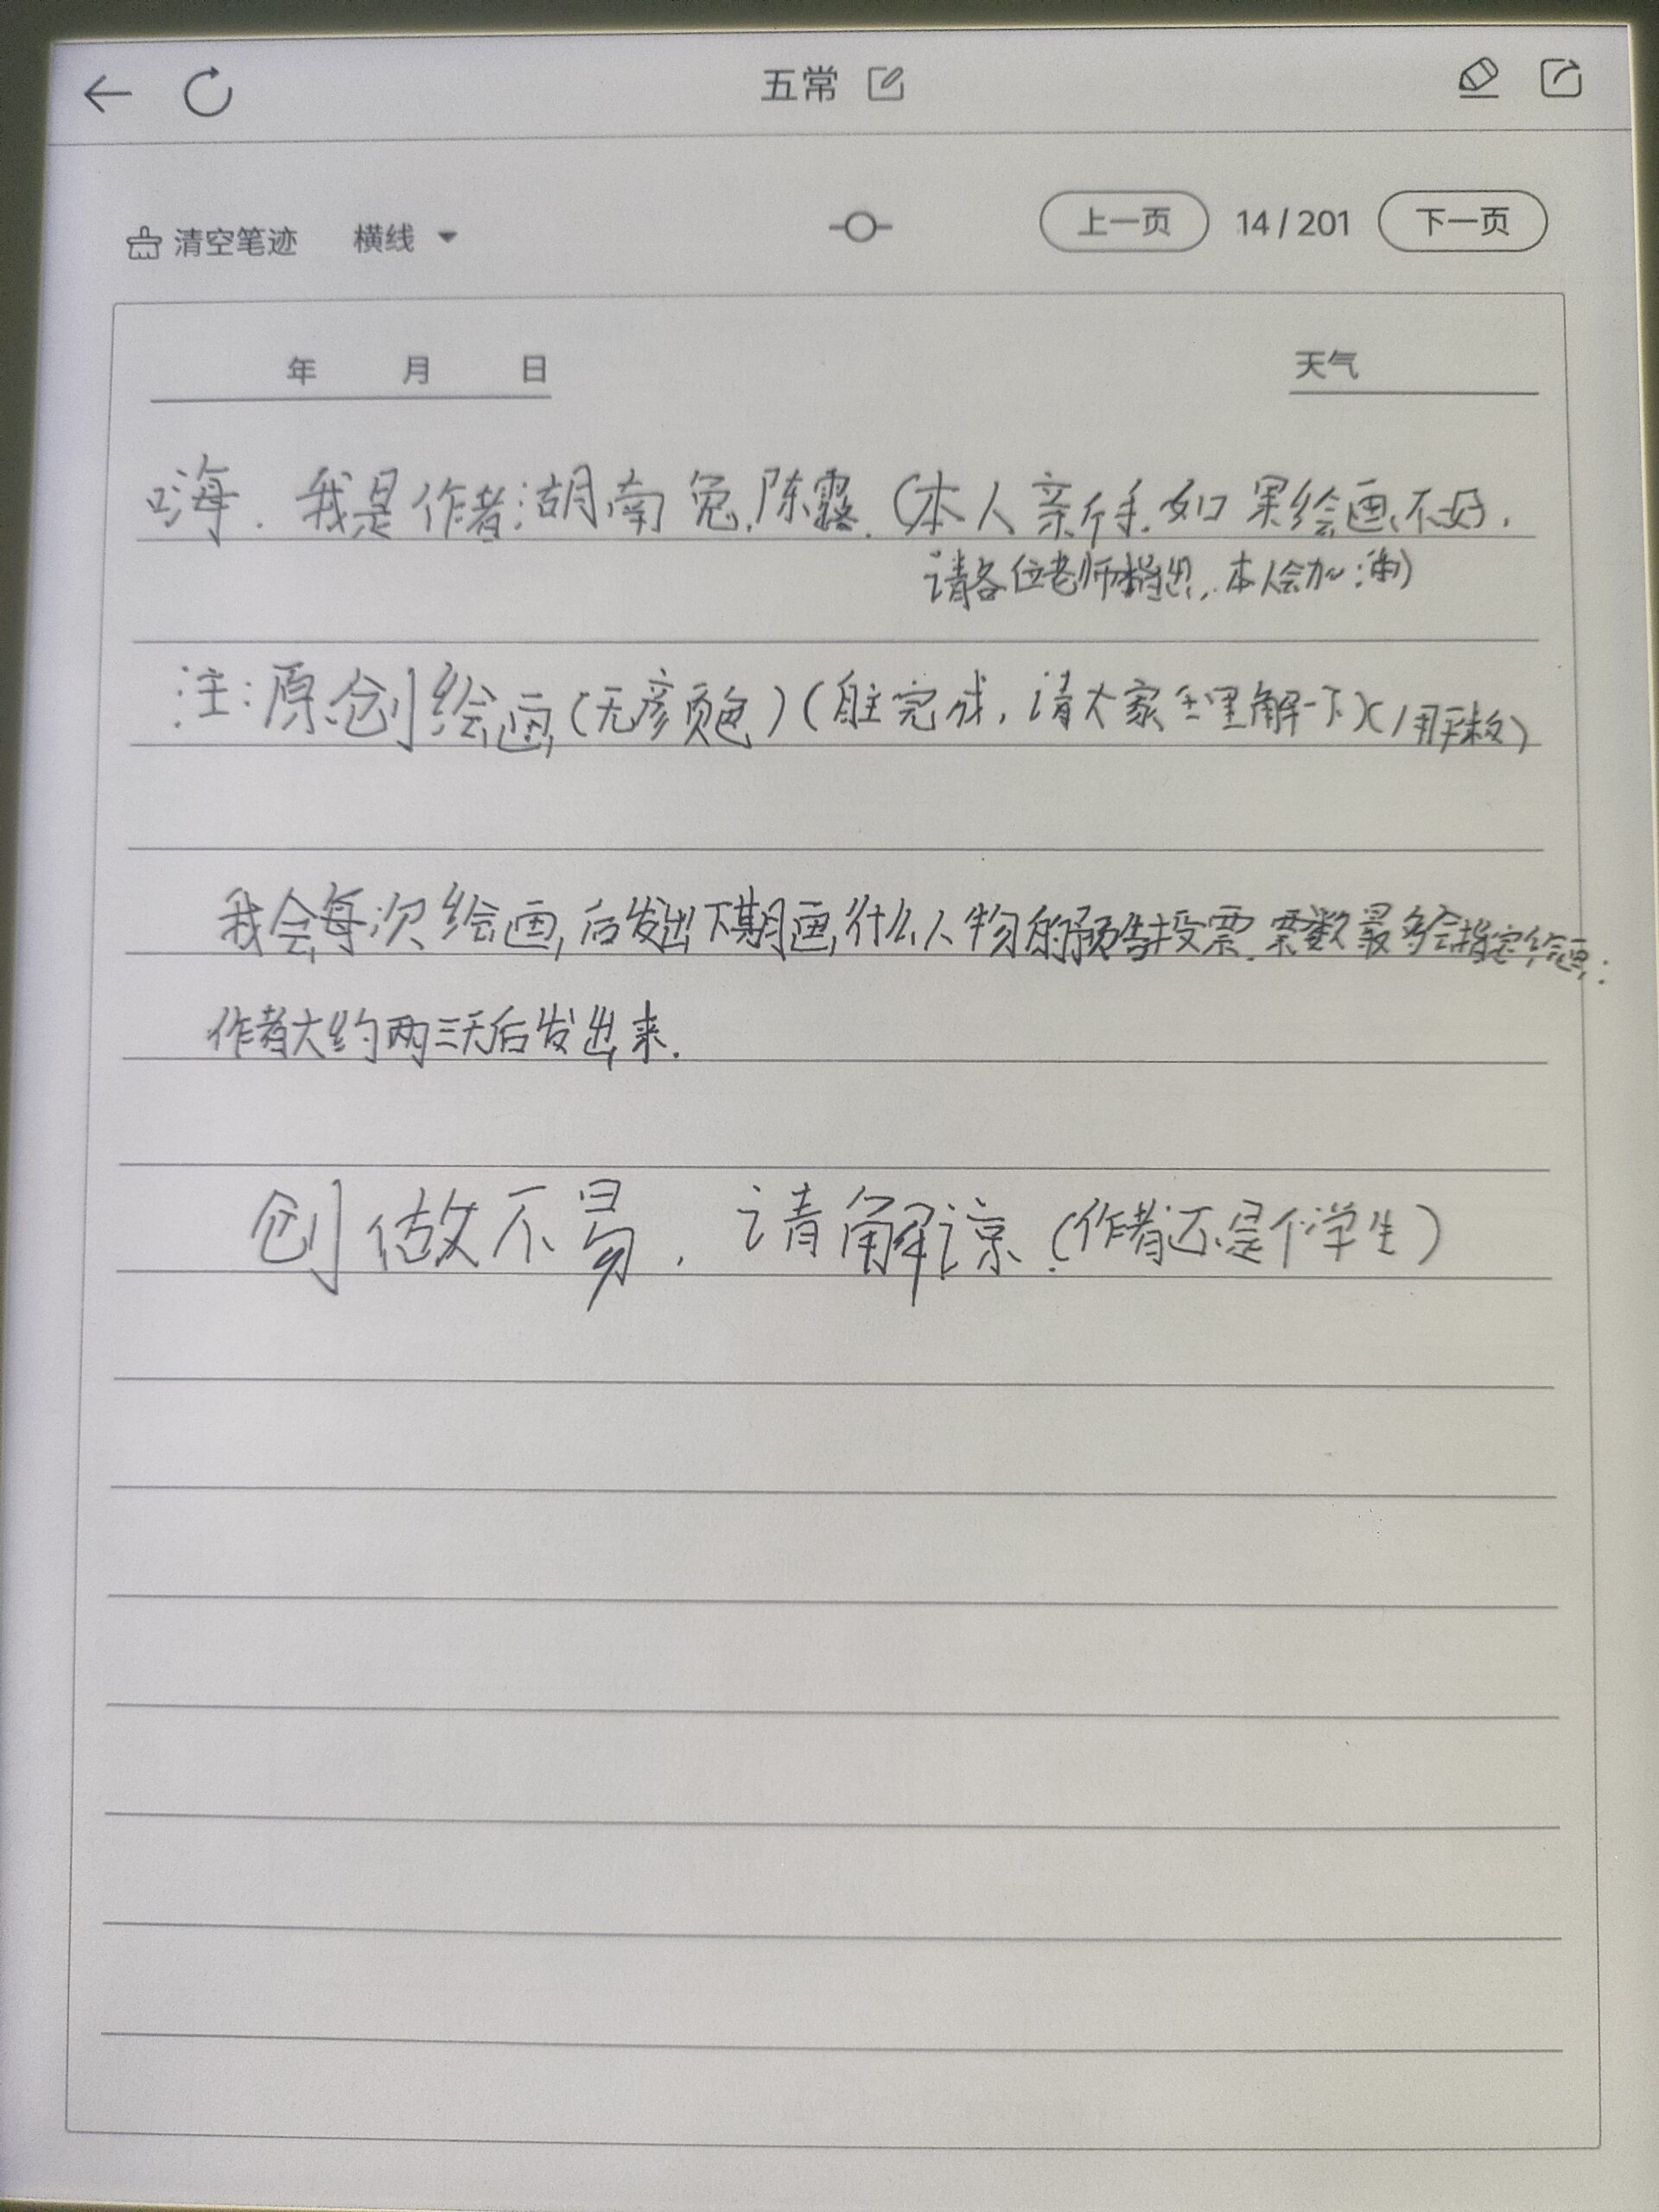 五常
清空笔迹 横线 上一页 14/201 下一页
年 月 日 天气
嗨.我是作者:湖南兔.陈露.(本人亲作手.如果绘画不好,
请各位老师指出,.本人会加油)
注:原创绘画(无颜色)(自主完成,请大家理解一下)(用平板)
我会每次绘画,后发出下期画什么人物的预告投票.票数最多会指定绘画;
作者大约两三天后发出来.
创做不易,请解谅.(作者还是个学生)